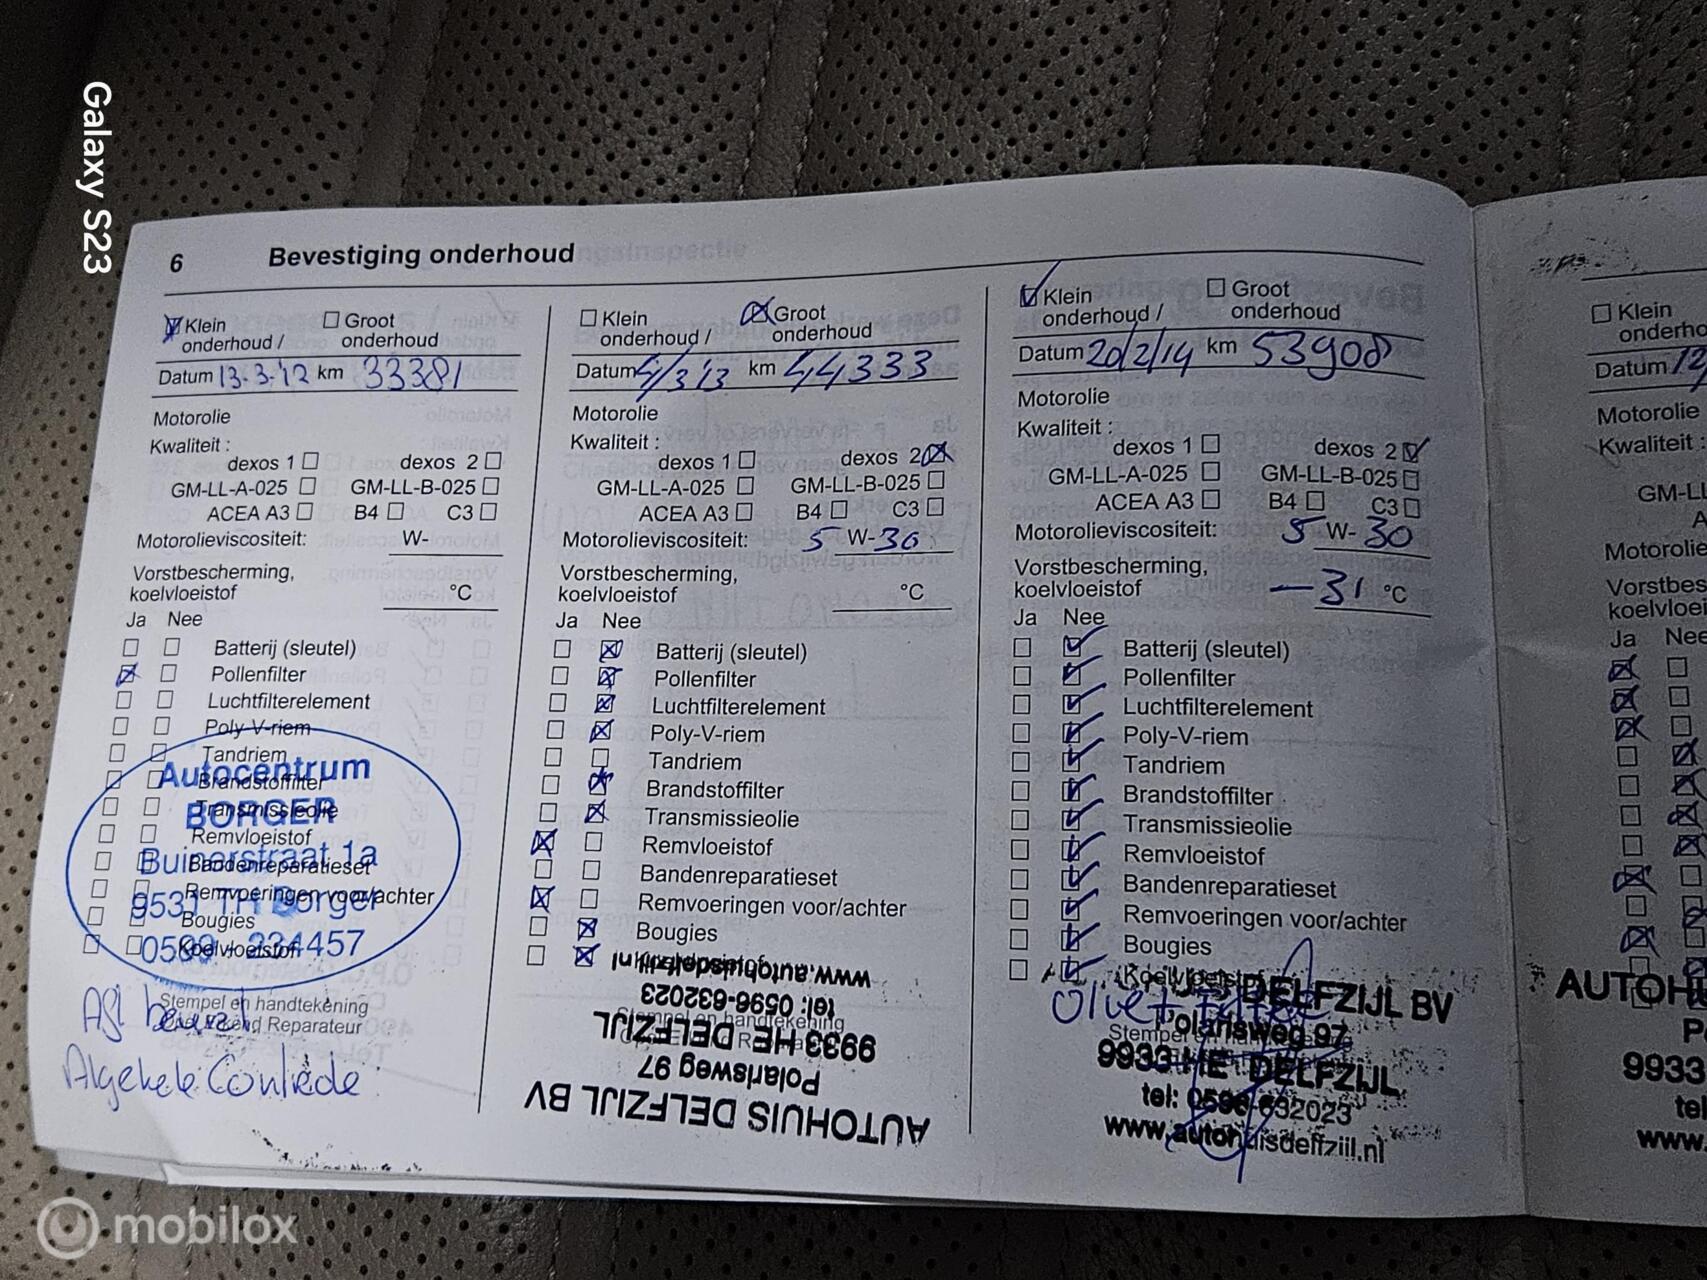 Galaxy S23
6 Bevestiging onderhoud
Klein onderhoud / Groot onderhoud
Datum 13-3-'12 km 33381
Motorolie
Kwaliteit :
dexos 1 dexos 2
GM-LL-A-025 GM-LL-B-025
ACEA A3 B4 C3
Motorolieviscositeit: W-
Vorstbescherming,
koelvloeistof °C
Ja Nee
Batterij (sleutel)
Pollenfilter
Luchtfilterelement
Poly-V-riem
Tandriem
Brandstoffilter
Transmissieolie
Remvloeistof
Bandenreparatieset
Remvoeringen voor/achter
Bougies
Koelvloeistof
Autocentrum
BORGER
Buinerstraat 1a
9531 TH Borger
Stempel en handtekening
Opel Erkend Reparateur
Klein onderhoud / Groot onderhoud
Datum 4/3'13 km 44333
Motorolie
Kwaliteit :
dexos 1 dexos 2
GM-LL-A-025 GM-LL-B-025
ACEA A3 B4 C3
Motorolieviscositeit: 5 W-30
Vorstbescherming,
koelvloeistof °C
Ja Nee
Batterij (sleutel)
Pollenfilter
Luchtfilterelement
Poly-V-riem
Tandriem
Brandstoffilter
Transmissieolie
Remvloeistof
Bandenreparatieset
Remvoeringen voor/achter
Bougies
Stempel en handtekening
AUTOHUIS DELFZIJL BV
Polarisweg 97
9933 HE DELFZIJL
tel: 0596-632023
www.autohuisdelfzijl.nl
Klein onderhoud / Groot onderhoud
Datum 20/2/14 km 53908
Motorolie
Kwaliteit :
dexos 1 dexos 2
GM-LL-A-025 GM-LL-B-025
ACEA A3 B4 C3
Motorolieviscositeit: 5 W-30
Vorstbescherming,
koelvloeistof -31 °C
Ja Nee
Batterij (sleutel)
Pollenfilter
Luchtfilterelement
Poly-V-riem
Tandriem
Brandstoffilter
Transmissieolie
Remvloeistof
Bandenreparatieset
Remvoeringen voor/achter
Bougies
Koelvloeistof
DELFZIJL BV
Polarisweg 97
9933 HE DELFZIJL
tel: 0596-632023
www.autohuisdelfzijl.nl
Klein
onderho
Datum
Motorolie
Kwaliteit :
GM-LL
Motorolie
Vorstbes
koelvloei
Ja Nee
AUTOH
9933
tel
www.
mobilox